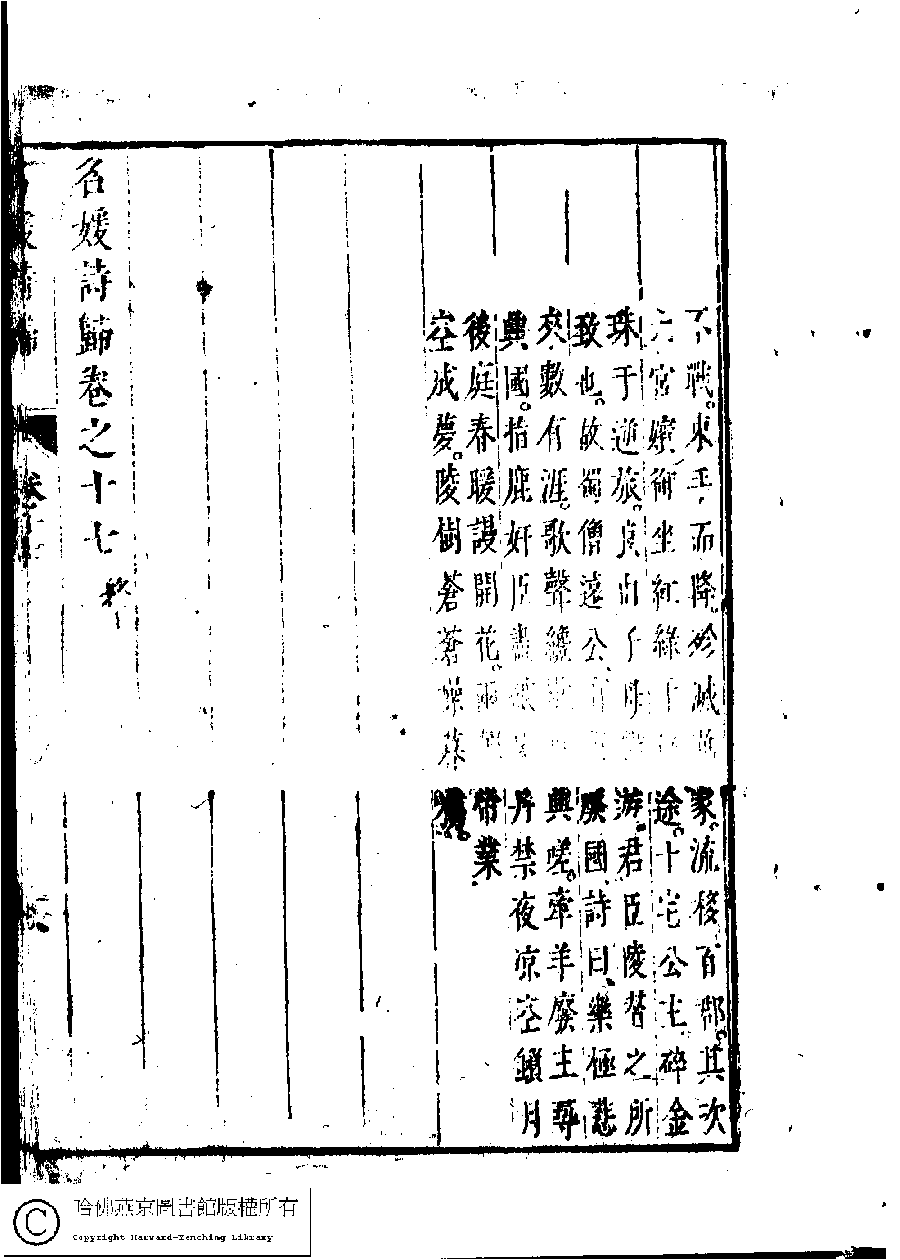 不戰。束手而降。殄滅 家。流移百郡。其次
六宮嬪御坐紅綠于 途。十宅公主碎金
珠于逆旅。良由子母 游。君臣陵替之所
致也。故蜀僧遠公 廢國詩曰、樂極悲
來數有涯。歌聲纔 興嗟。牽羊廢主尋
傾國。指鹿奸臣盡 丹禁夜涼空鎖月
後庭春暖謾開花。兩 帝業
空成夢。陵樹蒼蒼 暮
名媛詩歸卷之十七 終
哈佛燕京圖書館版權所有
Copyright Harvard-Yenching Library